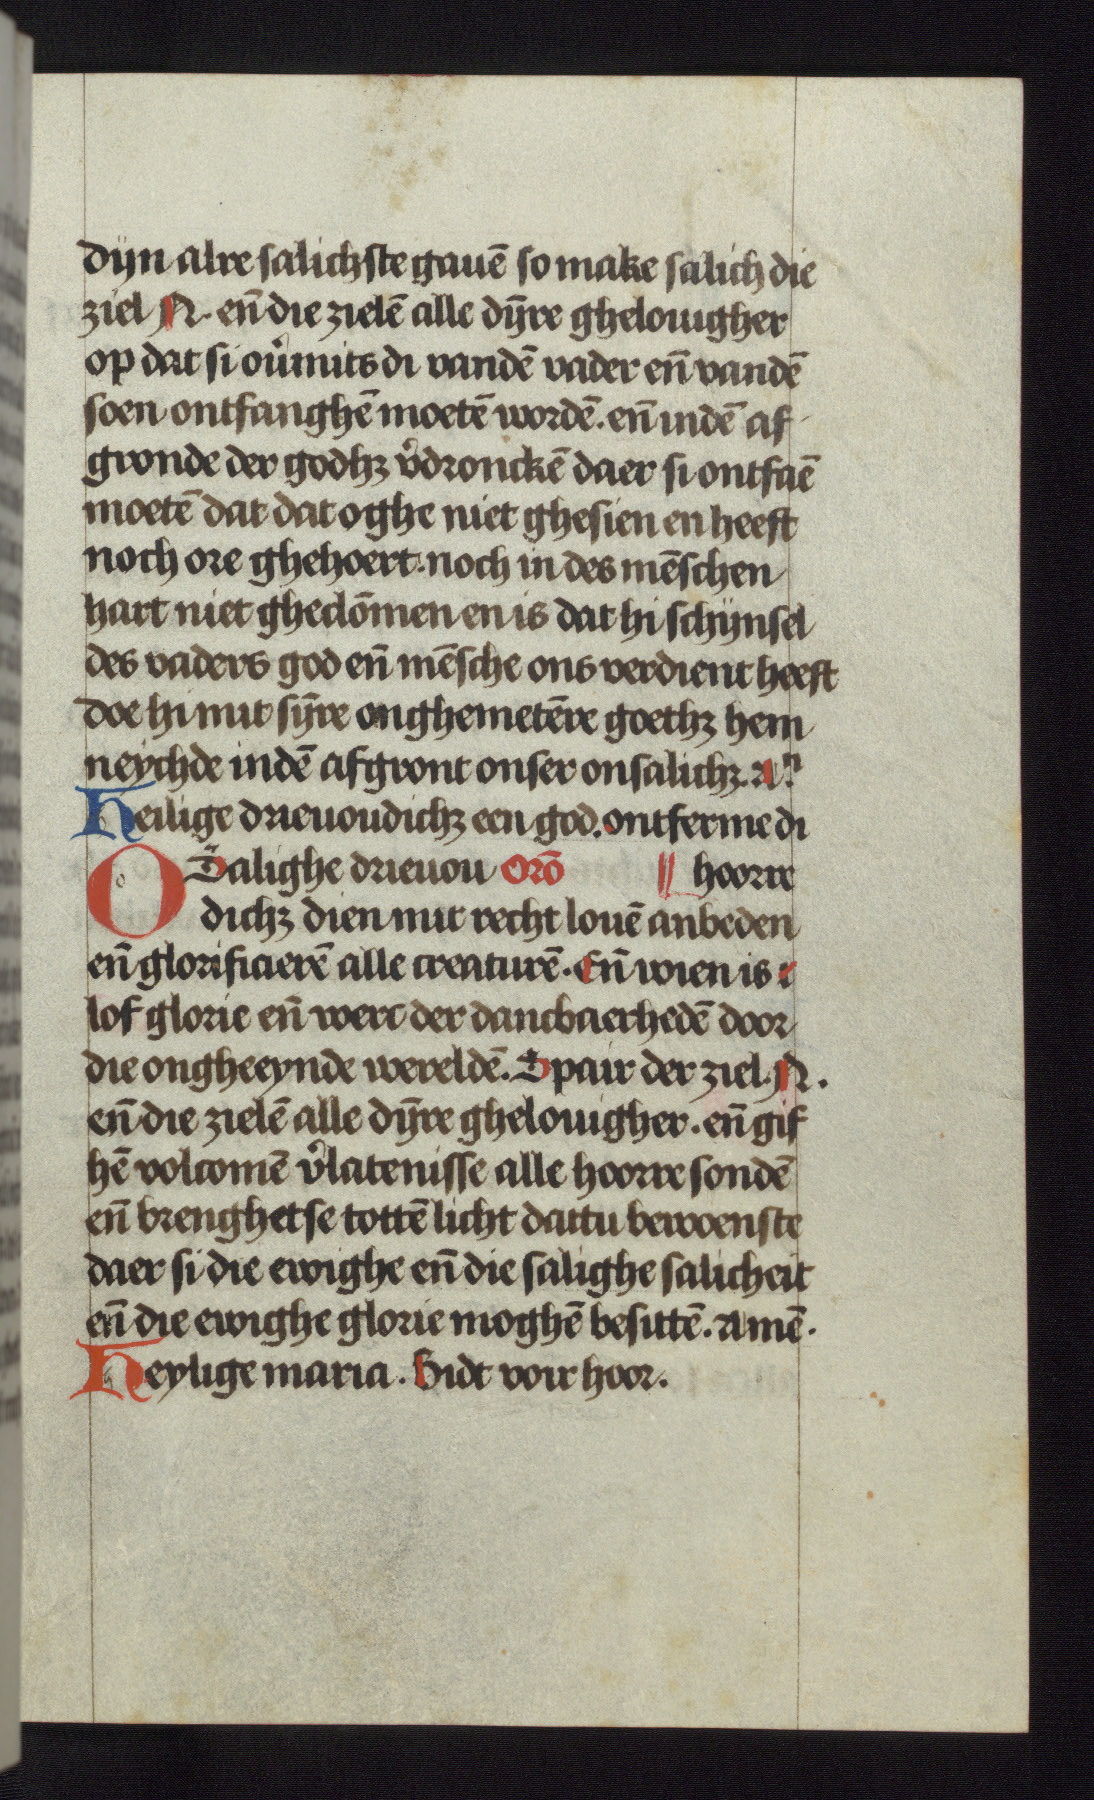 dijn alre salichste gauē so make salich die
ziel N. en̄ die zielē alle dȳre ghelouigher
op dat si ou̓mits di vandē vader en̄ vandē
soen ontfanghē moetē wordē. en̄ indē af
gronde der godhꝫ v̓dronckē daer si ontfaē
moetē dat dat oghe niet ghesien en heeft
noch ore ghehoert. noch in des mēschen
hart niet gheclōmen en is dat hi schijnsel
des vaders god en̄ mēsche ons verdient heeft
doe hi mit sȳre onghemetēre goethꝫ hem
neychde indē afgront onser onsalichꝫ. A.ⁿ
Heilige drieuoudichꝫ een god. ontferme di
O Salighe drieuou Orō hoorre
dichꝫ dien mit recht louē anbeden
en̄ glorificierē alle creaturē. En̄ wien is
lof glorie en̄ werc der dancbaerhedē door
die ongheeynde wereldē. Spair der ziel. N.
en̄ die zielē alle dȳre ghelouigher. en̄ gif
hē volcomē v̓latenisse alle hoorre sondē
en̄ brenghetse tottē licht dattu bewoenste
daer si die ewighe en̄ die salighe salicheit
en̄ die ewighe glorie moghē besittē. Amē.
Heylige maria. Bidt voir hoor.